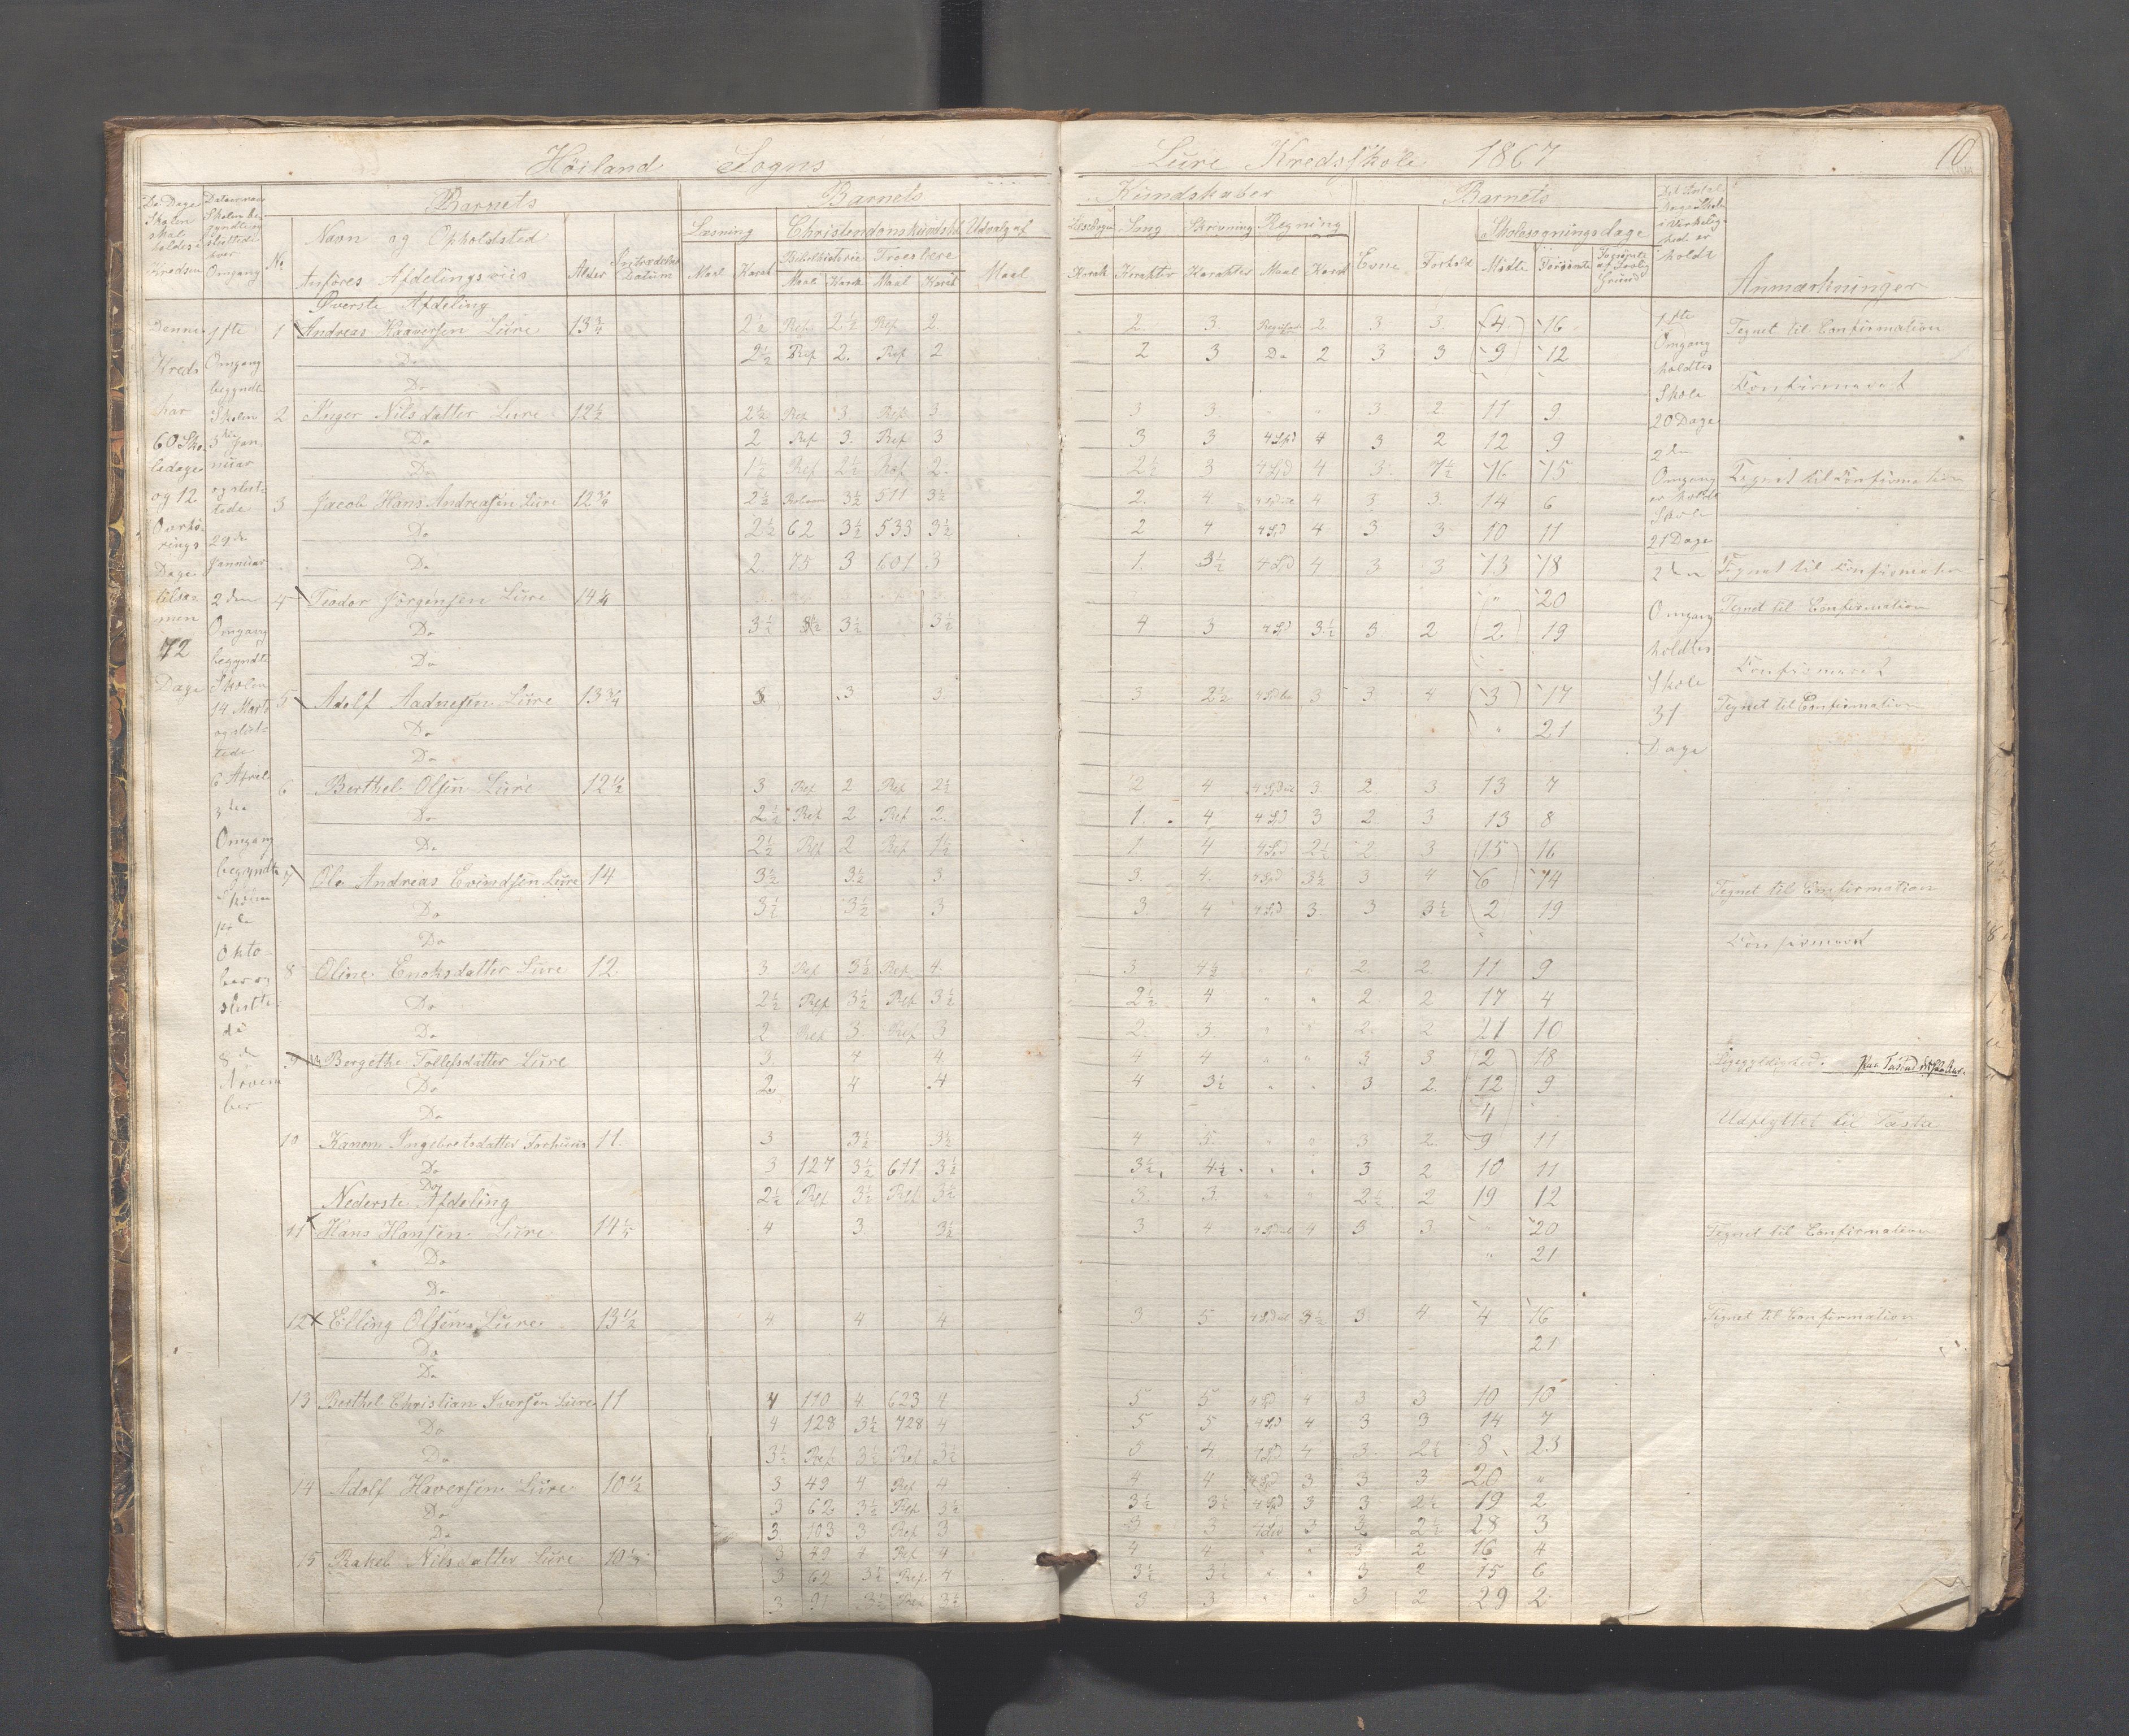 Höiland Sogns
Lure Kredsskole 1867
10
Barnets
Barnets
Kundskaber
Barnets
No
Navn og Opholdsted
Anføres Afdelingsviis
Alder
Læsning
Christendomskundskab
Udvalg af
Bibelhistorie
Troeslære
Maal Karak Maal Karak Maal Karak Maal
Sang Skrivning Regning
Karakter Karakter Maal Karak Evne Forhold
Skolesøgningsdage
Mødte Forsømte
Anmærkninger
Øverste Afdeling
1 Andreas Haaversen Lure 13 3/4 2 1/2 Rep 2 1/2 Rep 2. 2. 3. 2. 3 3. 4 16 Tegnet til Confirmation
Do 2 1/2 Rep 2. Rep 2 2 3 Do 2 3 3 9 12
Do Confirmeret
2 Inger Nilsdatter Lure 12 1/2 2 1/2 Rep 3. Rep 3 3 3 " " 3 2 11 9
Do 2 Rep 3. Rep 3 3 3 4 Spd 4 3 2 12 9
Do 1 1/2 Rep 2 1/2 Rep 2. 2 1/2 3 4 Spd 4 3. 1 1/2 16 15 Tegnet til Confirmation
3 Jacob Hans Andreasen Lure 12 3/4 2 1/2 3 1/2 511 3 1/2 2. 4 4 3 3. 14 6
Do 2 1/2 62 3 1/2 533 3 1/2 2 4 4 Spd 4 3 3 10 11
Do 2. 75 3 601 3 1. 3 1/2 4 Spd 4 3 3 13 18 Tegnet til Confirmation
4 Teodor Jörgensen Lure 14 1/4 " 20 Tegnet til Confirmation
Do 3 1/2 3 1/2 3 1/2 3 1/2 4 3 4 Spd 3 1/2 3 2 2 19
Do Confirmeret
5 Adolf Aadnesen Lure 13 3/4 3 3 3 3 2 1/2 3 3 4 3 17 Tegnet til Confirmation
Do " 21
Do
6 Berthel Olsen Lure 12 1/2 3 Rep 2 Rep 2 1/2 2 4 3 2 3 13 7
Do 2 1/2 Rep 2 Rep 2. 1. 4 4 Spd 3 2 3 13 8
Do 2 1/2 Rep 2 Rep 1 1/2 1 4 4 Spd 2 1/2 2 3 15 16
7 Ole Andreas Evindsen Lure 14 3 1/2 3 1/2 3 3. 4. 4 Spd 3 1/2 3 4 6 14 Tegnet til Confirmation
Do 3 1/2 3 1/2 3 3. 4 4 Spd 3. 3 3 1/2 2 19
Do Confirmeret
8 Oline Enoksdatter Lure 12. 3 Rep 3 1/2 Rep 4. 3. 4 1/2 " 2. 2 11 9
Do 2 1/2 Rep 3 1/2 Rep 3 1/2 2 1/2 4 " " 2 2 17 4
Do 2 Rep 3 Rep 3 2. 3. " " 2. 2 21 10
9 Borgethe Tollefsdatter Lure 3. 4 4 4 4 " " 3 3 2 18 Ligegyldighed.
Do 2. 4 4 4 3 1/2 " " 3 2. 12 9
Do 4 Udflyttet til Tastu
10 Karen Ingebretsdatter Forhuus 11. 3 3 1/2 3 1/2 4 5 " " 3 2. 9 11
Do 3 127 3 1/2 611 3 1/2 3 1/2 4 1/2 " " 3 2 10 11
Do 2 1/2 Rep 3 1/2 Rep 3 1/2 3 3. " " 2 1/2 2 19 12
Nederste Afdeling
11 Hans Hansen Lure 4 3. 3 1/2 3 4 4 3 3. " 20 Tegnet til Confirmation
" Do " 21
Do
12 Elling Olsen Lure 13 1/2 4 4 4 3 5 3 1/2 3. 4 4 16 Tegnet til Confirmation
Do 21
Do
13 Berthel Christian Iversen Lure 11 4 110 4. 623 4 5 5 4 Spd 4 3 3 10 10
Do 4 128 3 1/2 728 4 5 5 4 Spd 4 3 3 14 7
Do 3 1/2 Rep 3 1/2 Rep 3 1/2 5 4 4 3. 2 1/2 8 23
14 Adolf Haversen Lure 10 1/2 3 49 4 Rep 4 4 4 4 Spd 3 3 3 20 "
Do 3 62 3 1/2 Rep 3 1/2 3 1/2 3 1/2 4 Spd 3 3 2 1/2 19 2
Do 3. 103 3 Rep 3 3 3 3 3 2 1/2 28 3
15 Rakel Nilsdatter Lure 3 49 4 Rep 4 4 4 " " 3 2 16 4
3 62 3 1/2 Rep. 4 3 1/2 3 1/2 " " 3 2 15 6
3 91 3 1/2 Rep 3 1/2 3 3 " " 3 2 29 2
Denne
Kreds
har
60 Sko-
ledage
og 12
Dage
tilsa-
men
72
Dage
1ste
Omgang
begyndte
Skolen
Januar
og slut-
tede
29de
Januar
2den
Omgang
begyndte
Skolen
14 Marts
og slut-
tede
6 April
3die
Omgang
begyndte
Skolen
Okto-
ber og
slutte-
de
8de
Novem
ber
1ste
Omgang
holdtes
Skole
20 Dage
2den
Omgang
er holdt
Skole
21 Dage
2den
Omgang
holdtes
Skole
31
Dage